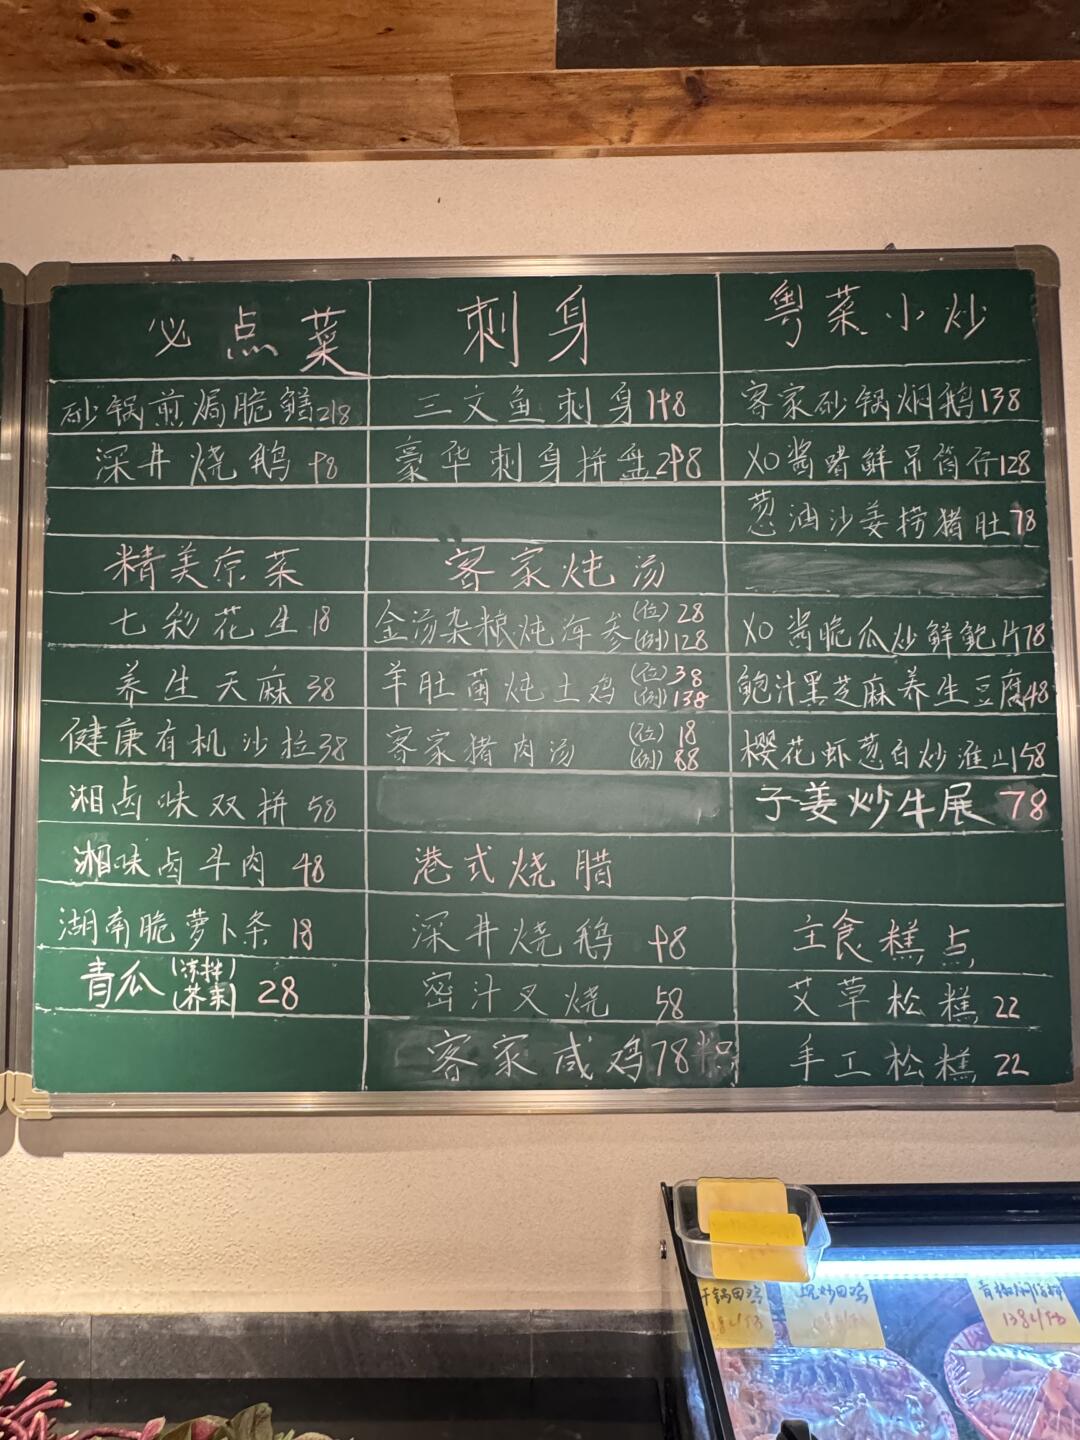 必点菜
砂锅煎焗脆鳝218
深井烧鹅98
精美凉菜
七彩花生18
养生天麻38
健康有机沙拉38
湘卤味双拼58
湘味卤牛肉48
湖南脆萝卜条18
青瓜(凉拌)(芥末)28
刺身
三文鱼刺身148
豪华刺身拼盘298
客家炖汤
金汤杂粮炖海参(位)28
(例)128
羊肚菌炖土鸡(位)38
(例)138
客家猪肉汤(位)18
(例)88
港式烧腊
深井烧鹅98
密汁叉烧58
客家咸鸡78
粤菜小炒
客家砂锅焖鹅138
XO酱啫鲜吊筒仔128
葱油沙姜捞猪肚78
XO酱脆瓜炒鲜鲍片78
鲍汁黑芝麻养生豆腐48
樱花虾葱白炒淮山58
子姜炒牛展78
主食糕点
艾草松糕22
手工松糕22
干锅田鸡
138/份